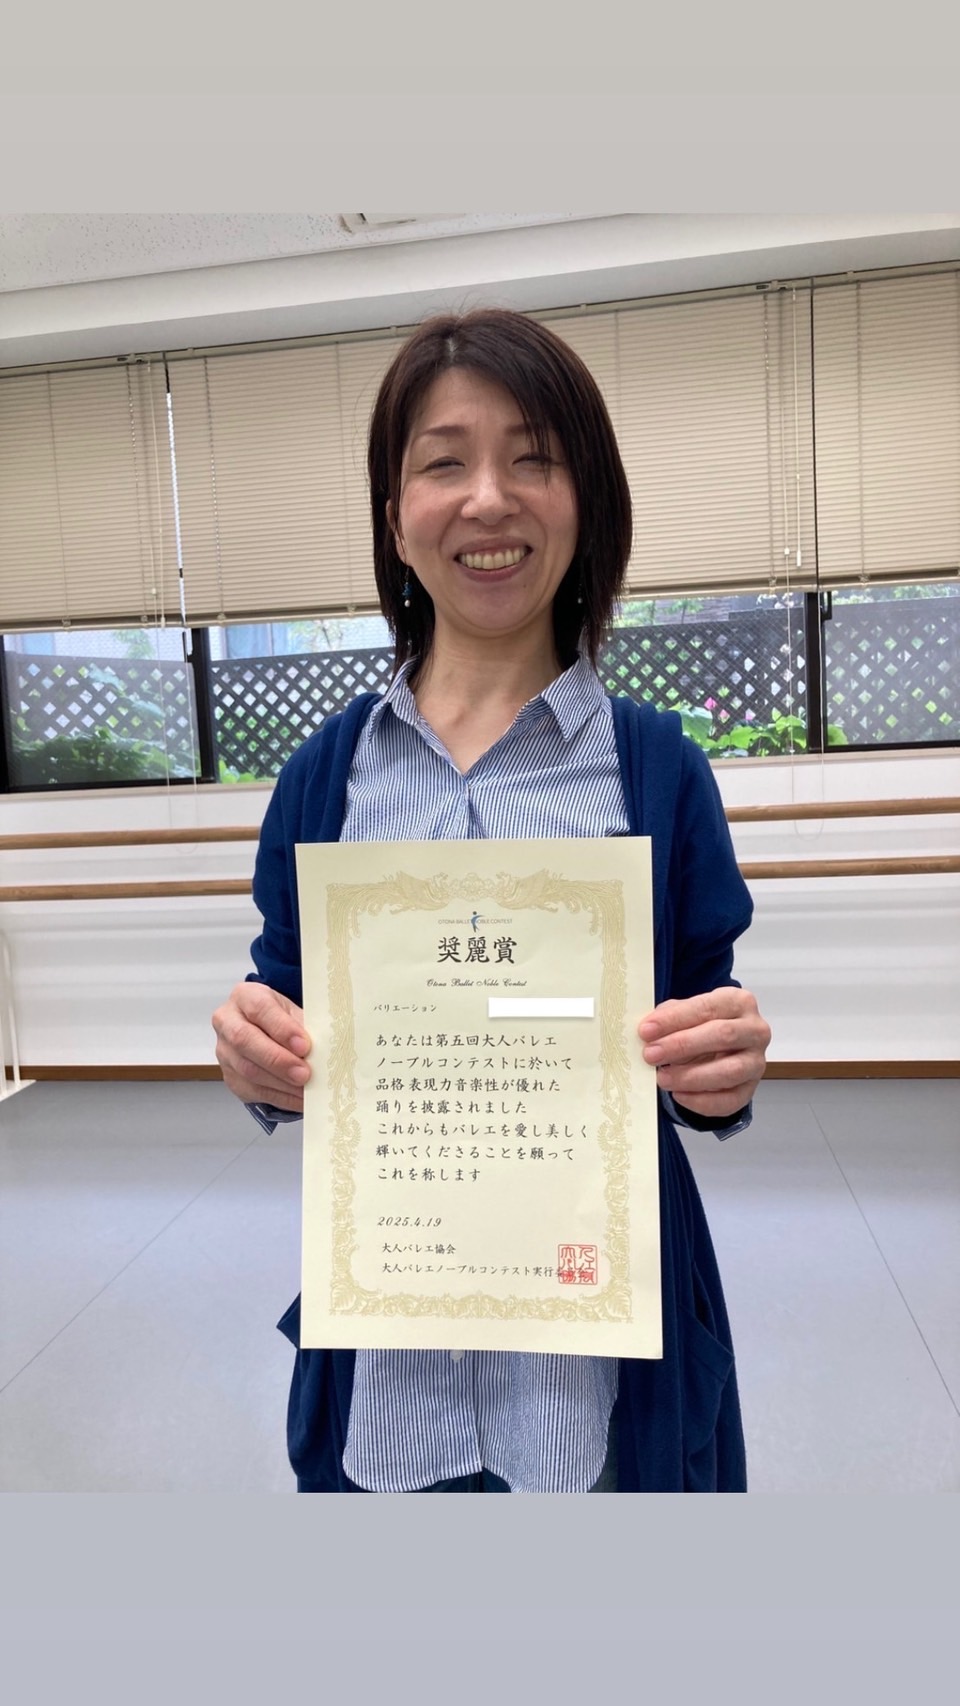 OTONA BALLET NOBLE CONTEST
奨麗賞
Otona Ballet Noble Contest
バリエーション
あなたは第五回大人バレエ
ノーブルコンテストに於いて
品格表現力音楽性が優れた
踊りを披露されました
これからもバレエを愛し美しく
輝いてくださることを願って
これを称します
2025.4.19
大人バレエ協会
大人バレエノーブルコンテスト実行